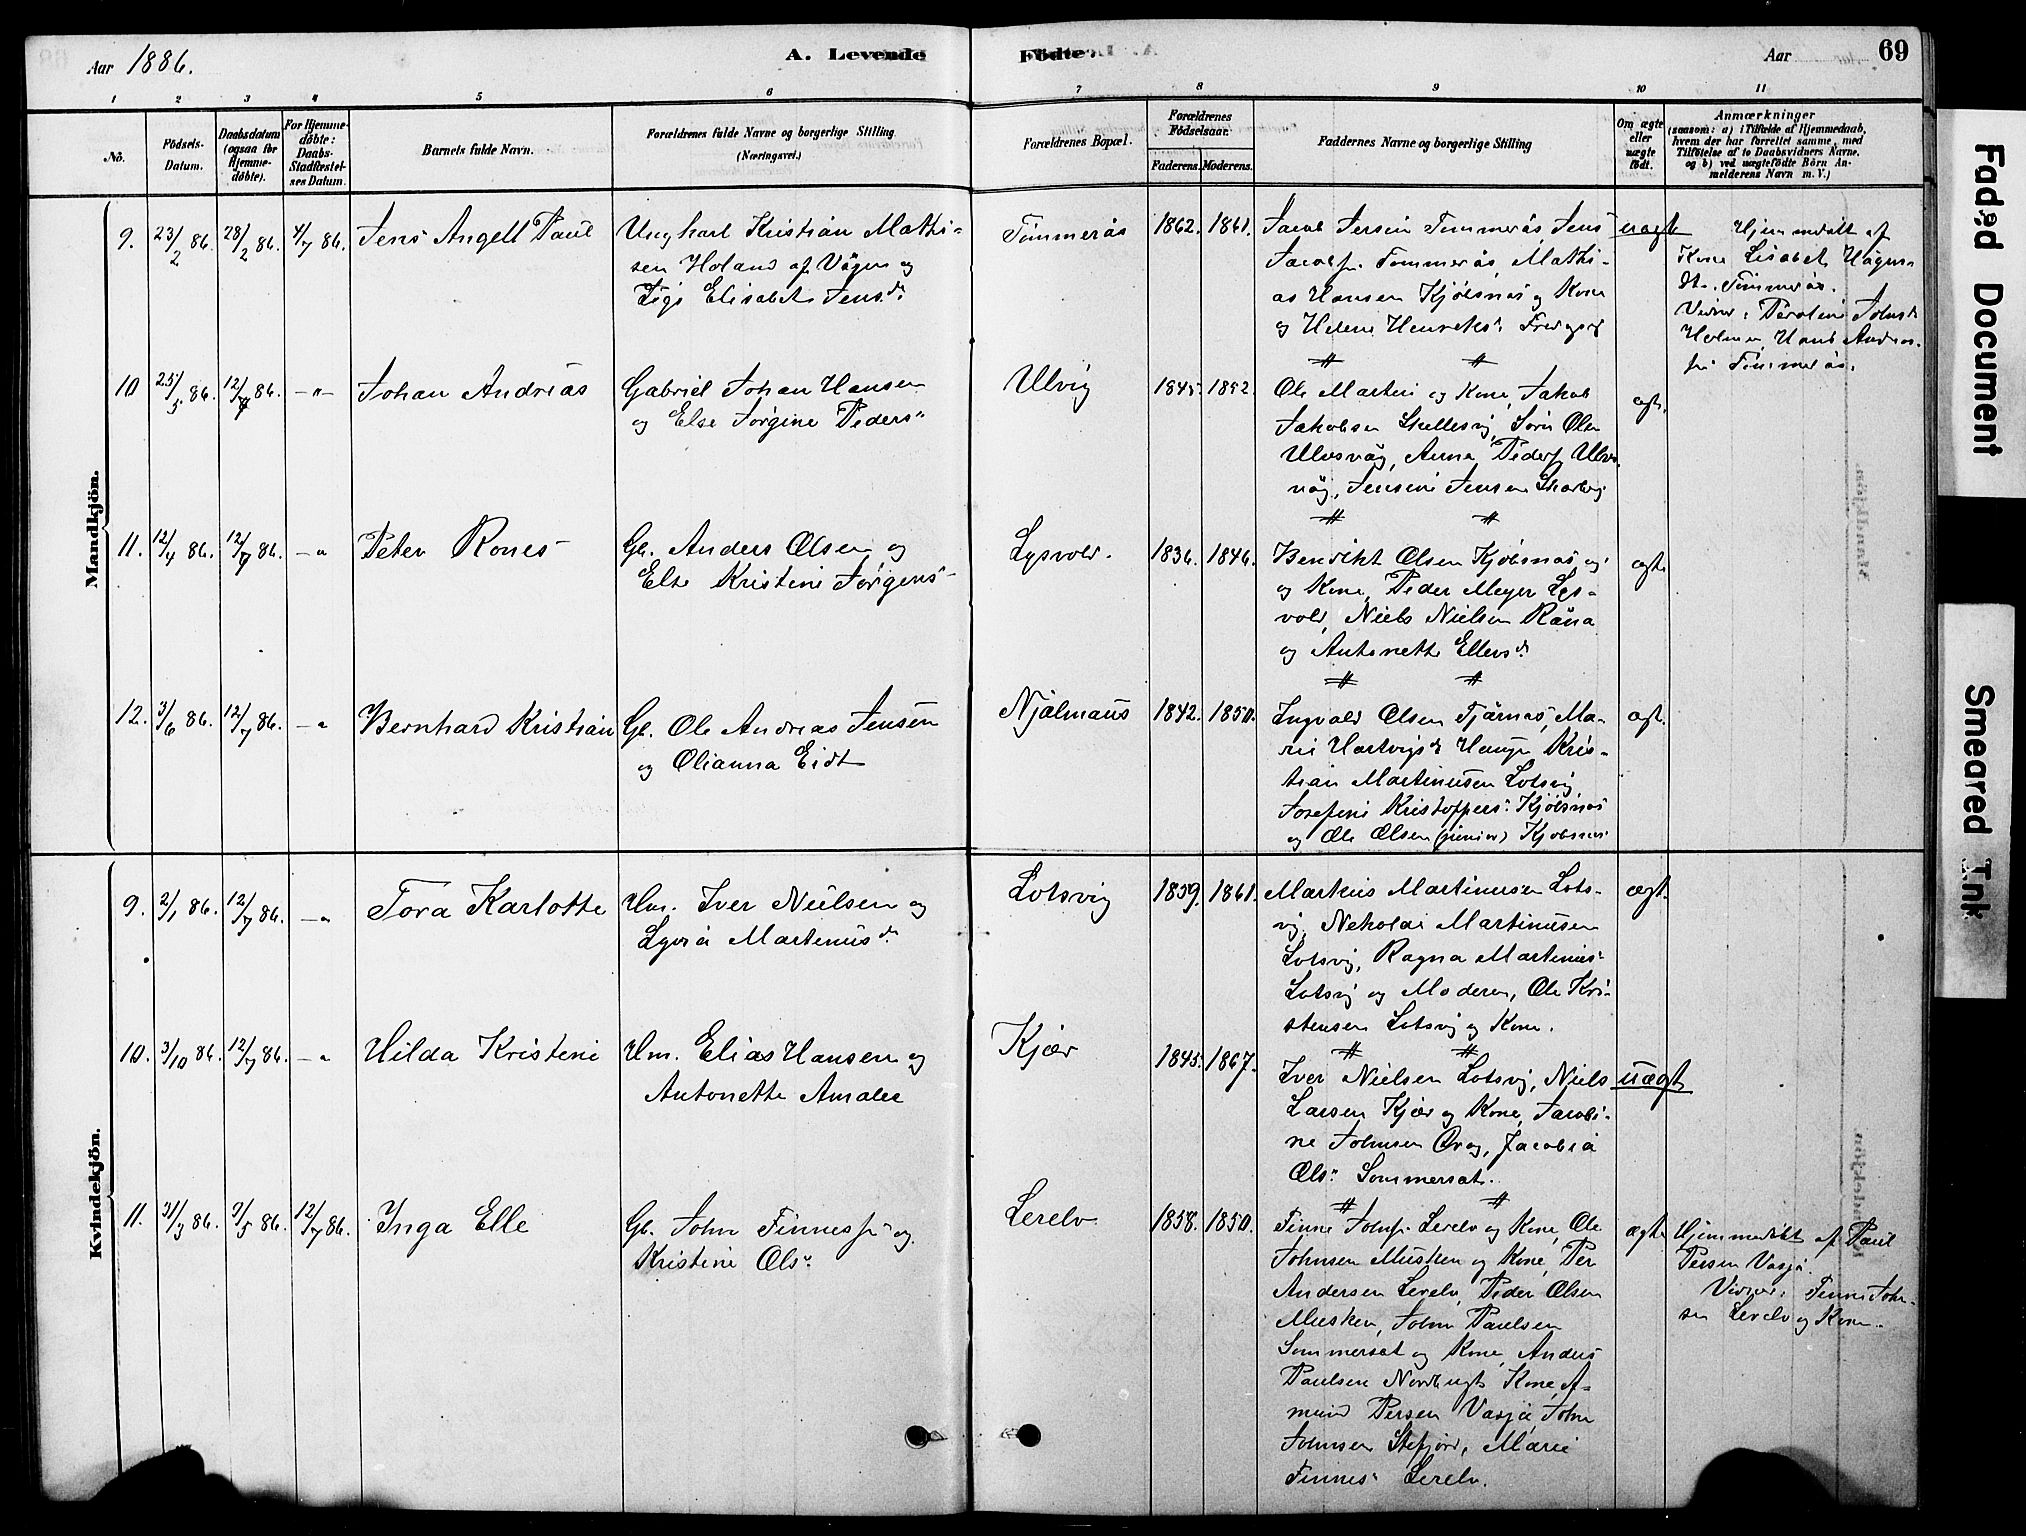 Aar 1886.
A. Levende
Födte.
Aar
69
1 2 3 4 5 6 7 8 9 10 11
No.
Födsels-
Datum.
Daabsdatum
(ogsaa for
Hjemme-
döbte).
For Hjemme-
döbte:
Daabs-
Stadfæstel-
ses Datum.
Barnets fulde Navn.
Forældrenes fulde Navne og borgerlige Stilling
(Næringsvei.)
Forældrenes Bopæl.
Forældrenes
Födselsaar.
Faderens. Moderens.
Faddernes Navne og borgerlige Stilling
Om ægte
eller
uægte
födt.
Anmærkninger
(saasom: a) i Tilfælde af Hjemmedaab,
hvem der har forrettet samme, med
Tilföielse af to Daabsvidners Navne.
og b) ved uægtefödte Börn An-
melderens Navn m. V.)
Mandkjön.
9. 23/2 86. 28/2 86. 4/7 86. Jens Angell Paul
Ungkarl Kristian Mathi-
sen Holand af Vågen og
Pige Elisabet Jens d.
Tømmerås 1862. 1861.
Jacob Jersin Tømmerås, Jens
Jacobs. Tømmerås, Mathi-
as Hansen Kjöbsnæs og Kone
og Helene Henriks.
uægte
Hjemmedöbt af
Kone Lisabet
Tømmerås.
Vidner:
Tømmerås.
10 25/5 86. 12/7 86. -"- Johan Andreas
Gabriel Johan Hansen
og Else Jörgine Peders"
Ulvig 1845. 1852.
Ole Martin og Kone, Jakob
Jakobsen Skellesvig, Sörn Olsen
Ulvsvåg, Anna Peders. Ulvs-
våg, Jensine Jensen
ægt.
11. 12/4 86. 12/7 86. -" Peter Rones
Gb. Anders Olsen og
Else Kristine Jörgens-
Lysvold. 1836. 1846.
Bendikt Olsen Kjöbsnæs og
og Kone, Peder Meyer Lys-
vold, Niels Nielsen Råna
og Antonette Ellevs d.
ægte
12. 3/6 86. 12/7 86. -" Bernhard Kristian
Gb. Ole Andreas Jensen
og Olianna Eidt
Njålmaus 1842. 1850.
Ingvald Olsen Tjärnæs, Ma-
rie Hartvigs d. Hauge, Kris-
tian Martinussen Lotsvig
Josefine Kristoffers. Kjöbsnæs
og Ole Olsen (junior) Kjöbsnæs
ægt.
Kvindekjön.
9. 2/1 86. 12/7 86. -" Tora Karlotte
Hm. Iver Nielsen og
Lyvia Martinus d.
Lotsvig 1859. 1861.
Markus Martinussen Lots-
vig, Nekolai Martinussen
Lotsvig, Ragna Martinus-
Lotsvig og Moderen, Ole Kri-
stensen Lotsvig og Kone.
ægt.
10. 3/10 86. 12/7 86. -" Hilda Kristine
Hm. Elias Hansen og
Antonette Amalie
Kjær 1845. 1867.
Iver Nielsen Lotsvig, Niels
Larsen Kjær og Kone, Jacobi-
ne Johnsen Drag, Jacobia
Ols" Sommerset.
uægt
11. 31/3 86. 9/5 86. 12/7 86. Inga Elle
Gb. John Finnes s. og
Kristine Ols"
Lerelv 1858. 1850.
Finne Johns. Lerelv og Kone, Ole
Johnsen Musken og Kone, Per
Andersen Lerelv, Peder Olsen
Musken, John Paulsen
Sommerset og Kone, Anders
Paulsen Nordbugt Kone, A-
mund Persen Vasja, John
Johnsen Stefjord, Marie
Finnes" Lerelv.
ægte
Hjemmedöbt af Paul
Persen Vasja.
Vidner: Finne John-
sen Lerelv og Kone.
Faded Document
Smeared Ink